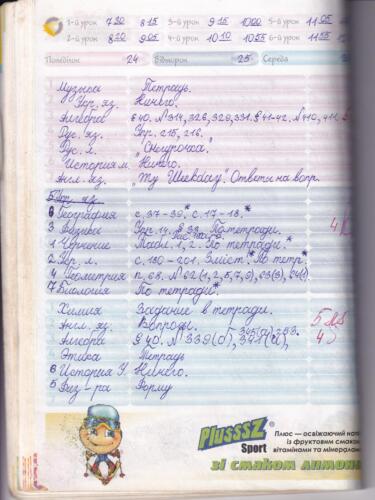 1-й урок 7 30 8 15 3-й урок 9 15 10 00 5-й урок 11 05
2-й урок 8 20 9 05 4-й урок 10 10 10 55 6-й урок 11 55
Понеділок 24 Вівторок 25 Середа
Музыка Тетрадь.
Укр. яз. Ничего.
Алгебра §40. №314, 326, 329, 331. §41-42. №410, 411.
Рус. яз. Упр. 215, 216.
Рус. л. "Снегурочка."
История м. Ничего.
Англ. яз. "My Weekday". Ответы на вопр.
6 География с. 37-39* с. 17-18.*
3 Физика Упр. 14. § 33. По тетради.
1 Черчение Табл. 1, 2. По тетради.*
2 Укр. л. с. 180-201. Зміст.* По тетр.*
4 Геометрия п. 68. №62(1, 2, 5, 7, 9), 63(3), 64(1).
7 Биология По тетради*
Химия Задание в тетради.
Англ. яз. Вопросы.
Алгебра § 40. №339(б), 341(а),
Этика Тетрадь
6 История У. Ничего.
5 Физ-ра Форму
Plusssz®
Sport
Плюс — освіжаючий нап
із фруктовим смако
вітамінами та мінерала
зі смаком лимона